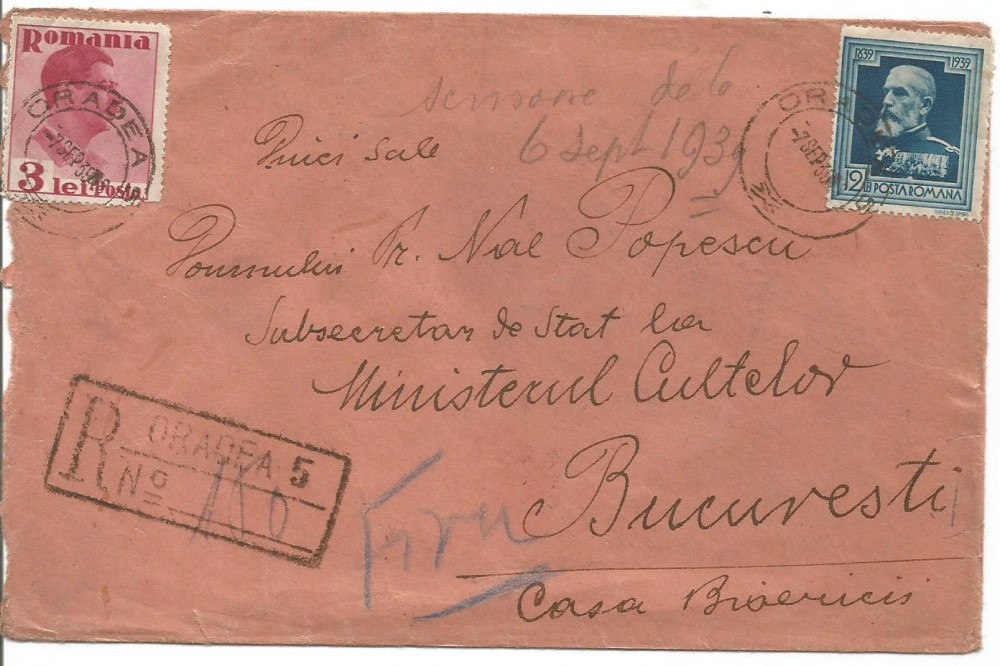 Romania
3 lei Posta
ORADEA
-7 SEP 39
1839 1939
12 LEI POSTA ROMANA
ORADEA
-7 SEP 39
scrisoare de la
6 sept 1939
Prici Sale
Domnului Pr. Nae Popescu
Subsecretar de Stat la
Ministerul Cultelor
Bucuresti
Casa Bisericii
R ORADEA 5
No